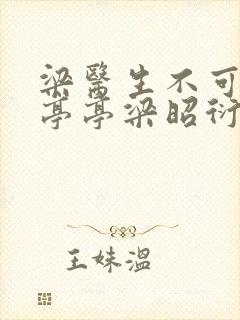 梁醫生不可
亭亭梁昭衍
王妹溫